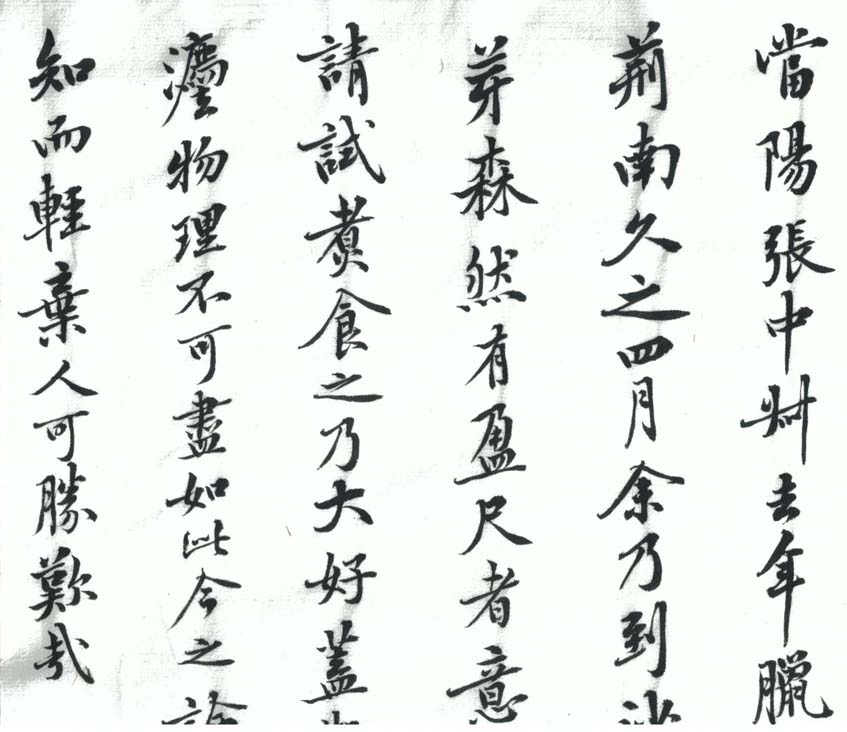 當陽張中叔去年臘
荊南久之四月余乃到沙
芽森然有盈尺者意
請試煮食之乃大好蓋
物理不可盡如此今之論
知而輕棄人可勝歎哉